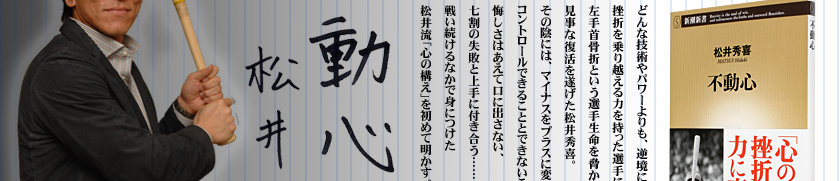 どんな技術やパワーよりも、逆境に
挫折を乗り越える力を持った選手に
左手首骨折という選手生命を脅か
見事な復活を遂げた松井秀喜。
その陰には、マイナスをプラスに変
コントロールできることとできない
悔しさはあえて口に出さない、
七割の失敗と上手に付き合う……
戦い続けるなかで身につけた
松井流「心の構え」を初めて明かす。
動心
松井
新潮新書
松井秀喜
MATSUI Hideki
不動心
「心の
挫折
力に